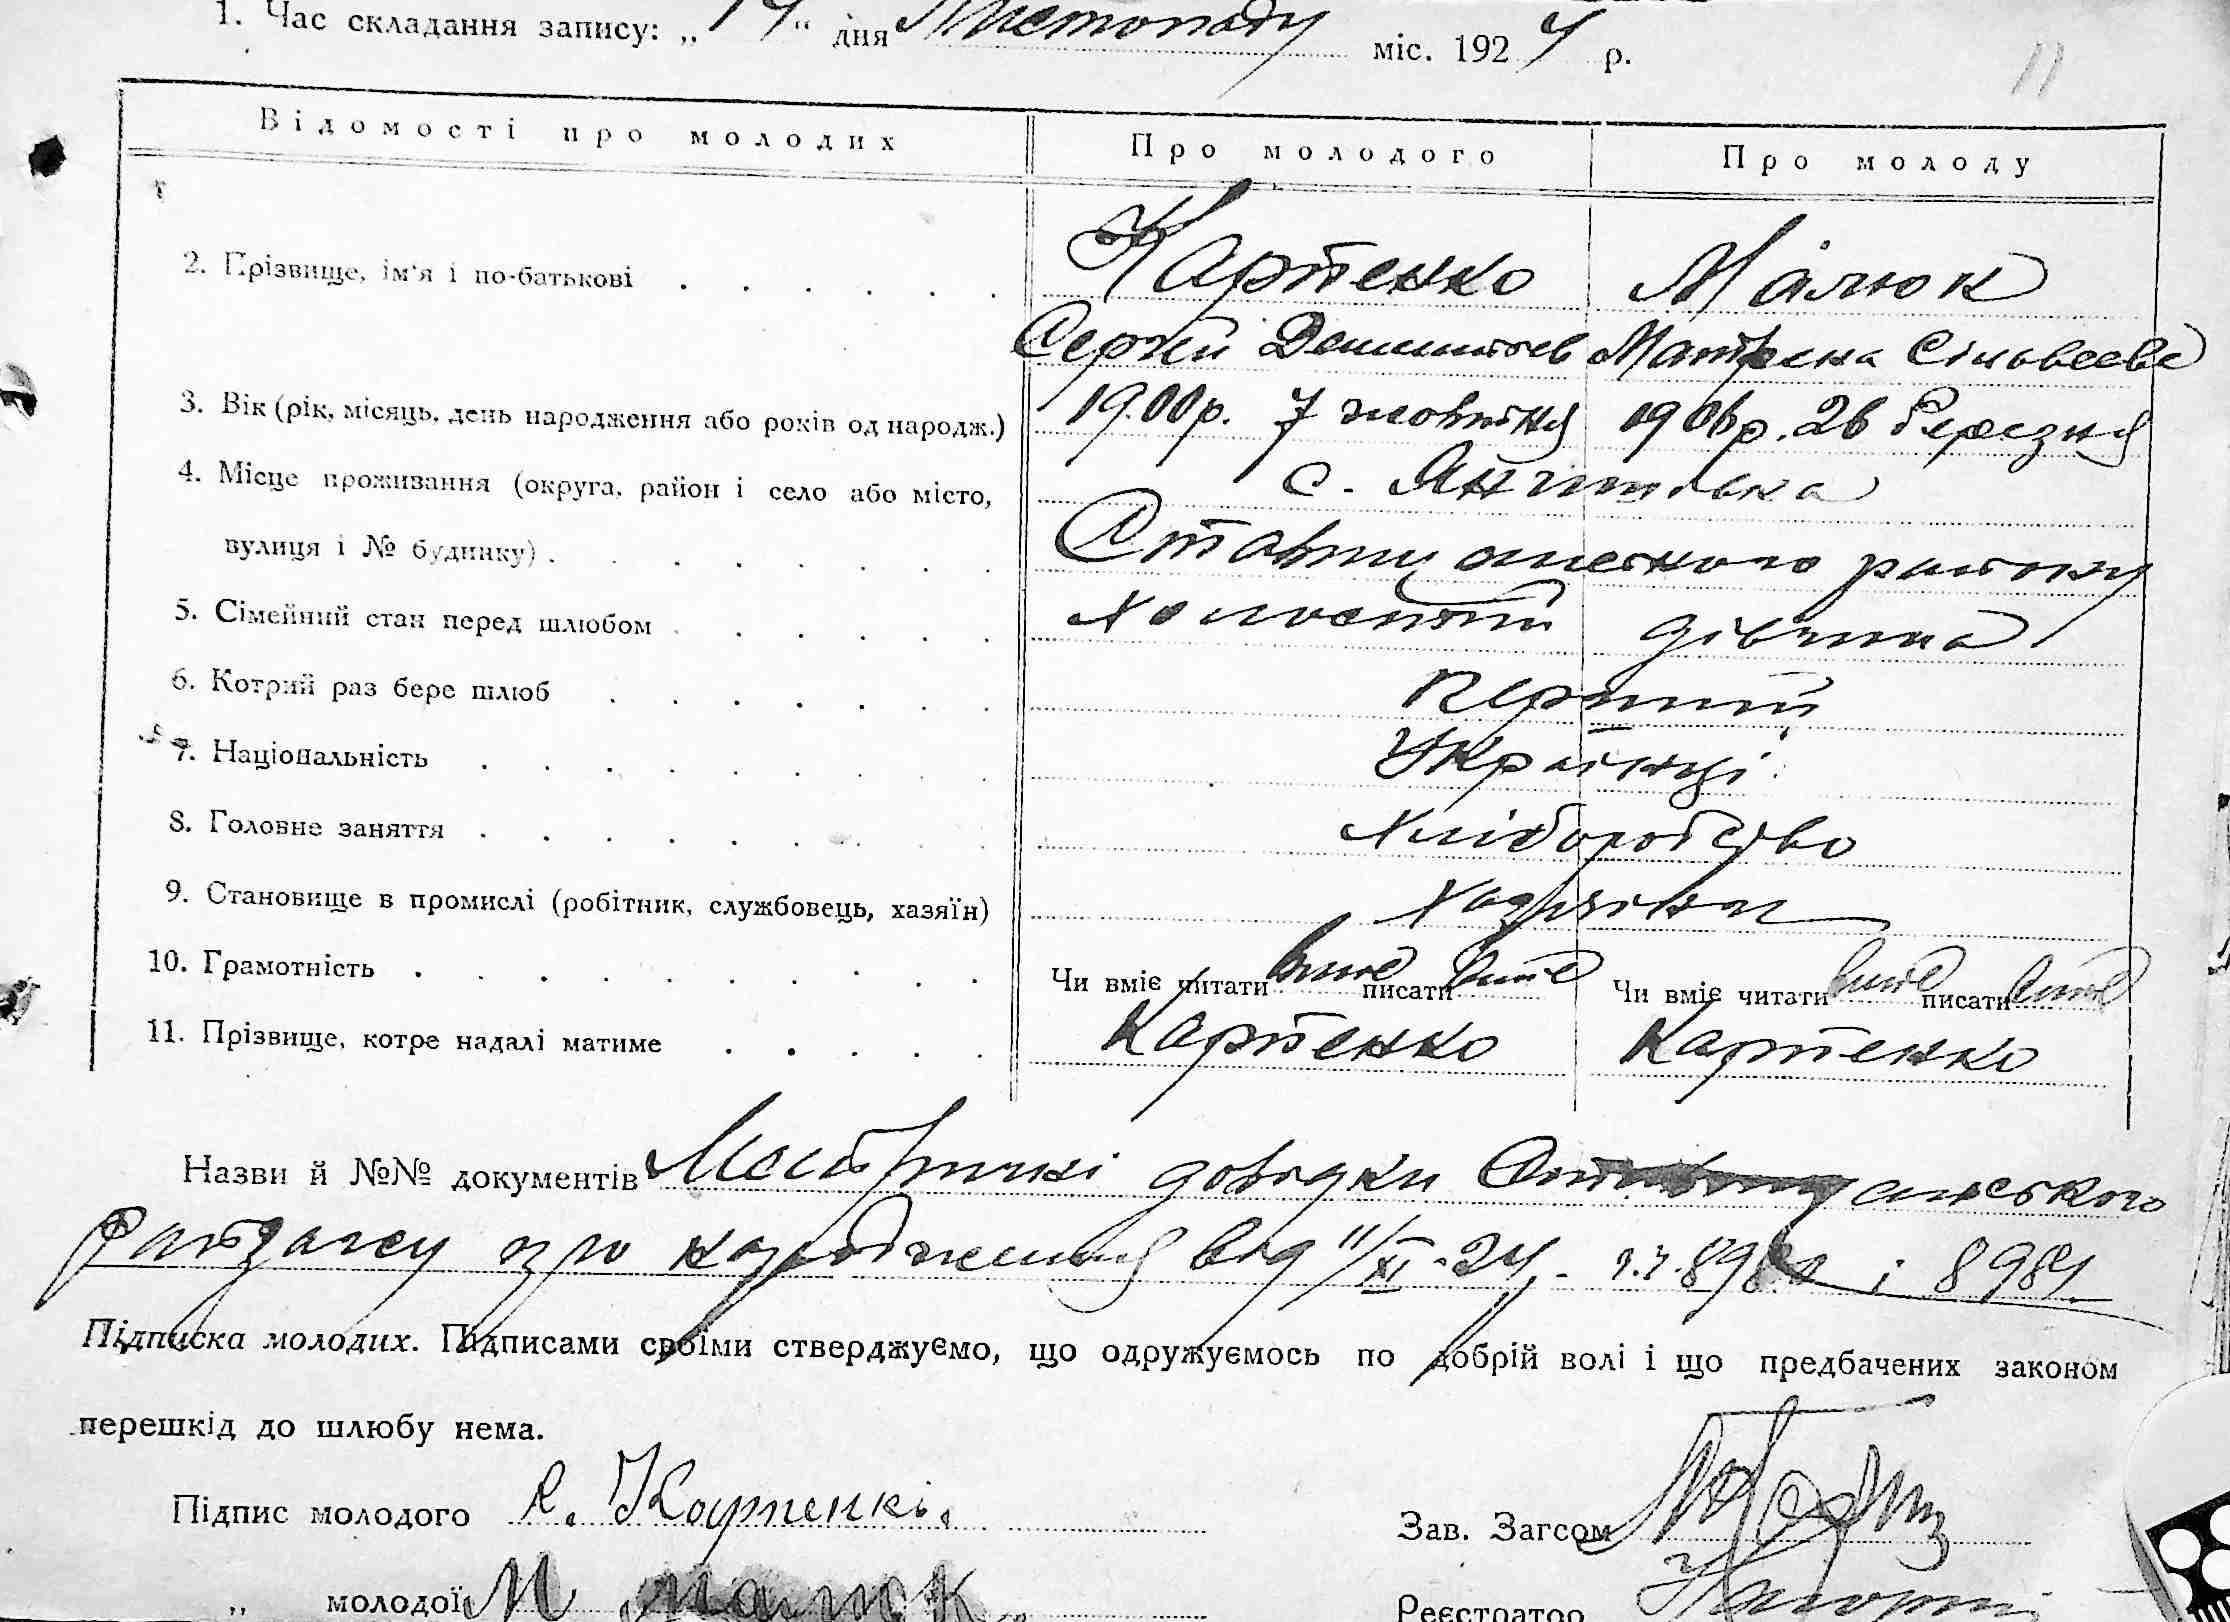 1. Час складання запису: „14“ дня Листопаду міс. 1924 р.
11
Відомості про молодих Про молодого Про молоду
2. Прізвище, ім'я і по-батькові Карпенко Малюк
Сергій Матрена
3. Вік (рік, місяць, день народження або років од народж.) 1900р. 7 жовтня 1906р. 26 березня
4. Місце проживання (округа, район і село або місто, с.
вулиця і № будинку) району
5. Сімейний стан перед шлюбом холостий дівчина
6. Котрий раз бере шлюб перший
7. Національність Українці
8. Головне заняття хліборобство
9. Становище в промислі (робітник, службовець, хазяїн)
10. Грамотність Чи вміє читати вміє писати вміє Чи вміє читати вміє писати вміє
11. Прізвище, котре надалі матиме Карпенко Карпенко
Назви й №№ документів Метричні довідки
Райзагсу про народження від 11/XI-24 і 8984.
Підписка молодих. Підписами своїми стверджуємо, що одружуємось по добрій волі і що предбачених законом
перешкід до шлюбу нема.
Підпис молодого С. Карпенко.
Зав. Загсом
„ молодої М Малюк
Реєстратор